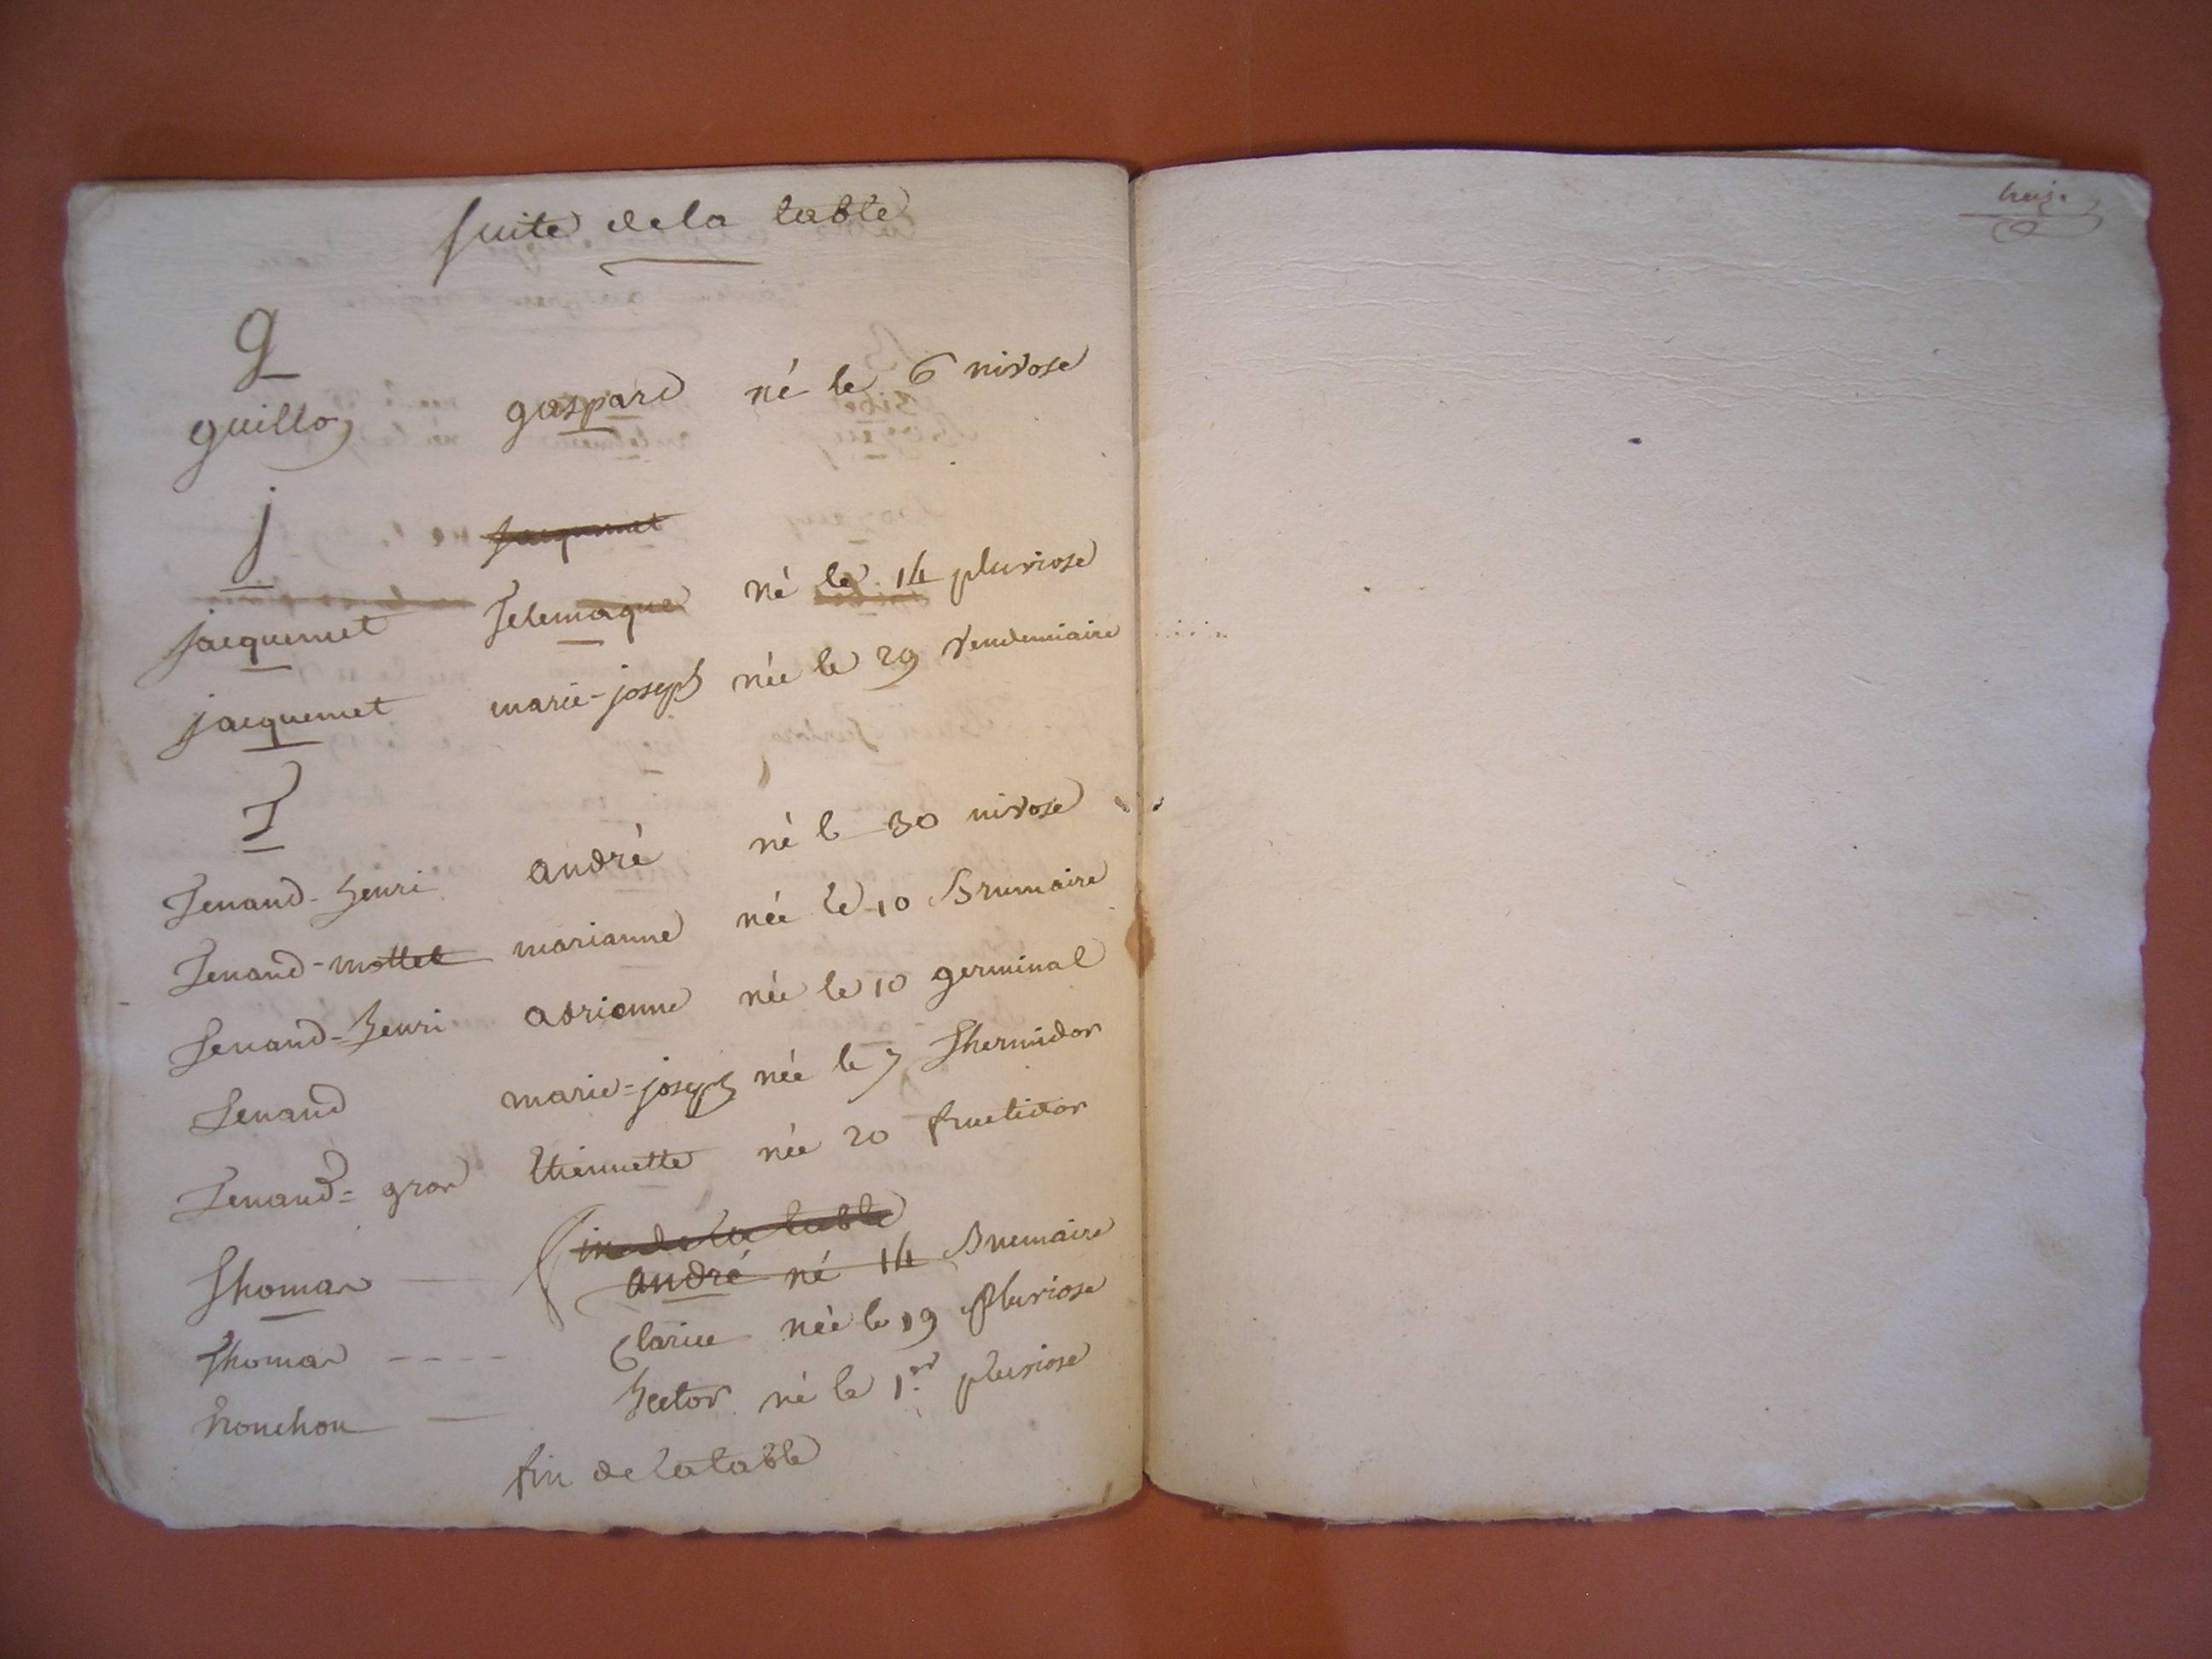 suite de la table
g
guilloz gaspard né le 6 nivose
j
jacquemet
jacquemet Telemaque né le 14 pluviose
jacquemet marie-joseph née le 29 vendemiaire
T
Tenand-henri andré né le 30 nivose
Tenand-mottet marianne née le 10 Brumaire
Tenand-henri adrienne née le 10 germinal
Tenand marie-joseph née le 7 Thermidor
Tenand= gros Etiennette née 20 fructidor
fin de la table
Thomas andré né 14 Brumaire
Thomas Clarice née le 19 pluviose
Hector né le 1.er pluviose
fin de la table